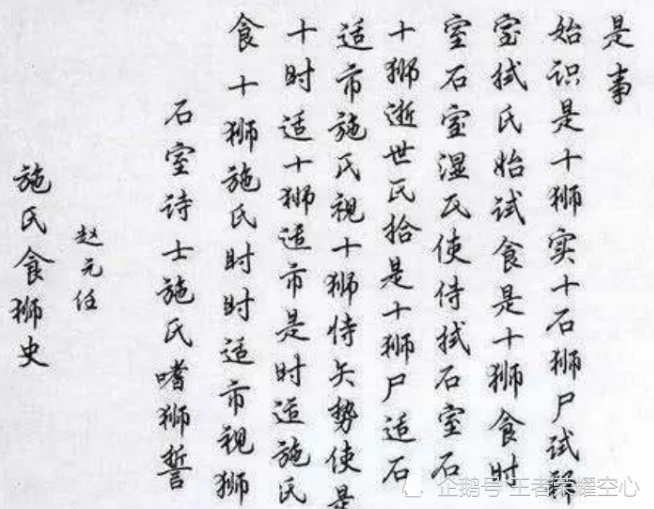 施氏食狮史
赵元任
石室诗士施氏嗜狮誓
食十狮施氏时时适市视狮
十时适十狮适市是时适施氏
适市施氏视十狮恃矢势使是
十狮逝世氏拾是十狮尸适石
室石室湿氏使侍拭石室石
室拭氏始试食是十狮食时
始识是十狮实十石狮尸试释
是事
企鹅号 王者荣耀空心